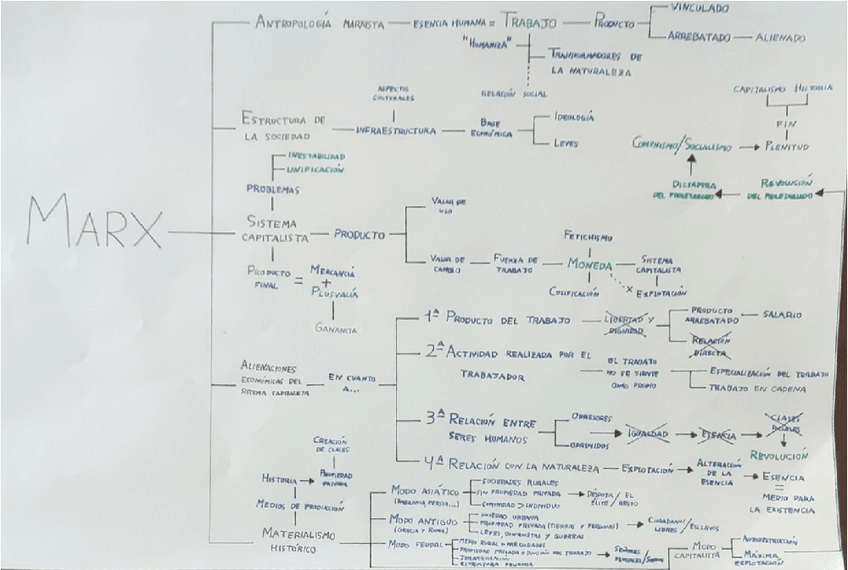 MARX
ANTROPOLOGÍA MARXISTA
ESENCIA HUMANA =
TRABAJO
PRODUCTO
VINCULADO
ARREBATADO
ALIENADO
"HUMANIZA"
TRANSFORMADORES DE
LA NATURALEZA
RELACIÓN SOCIAL
ESTRUCTURA DE
LA SOCIEDAD
ASPECTOS
CULTURALES
INFRAESTRUCTURA
BASE
ECONÓMICA
IDEOLOGÍA
LEYES
CAPITALISMO HISTORIA
FIN
COMUNISMO/SOCIALISMO
PLENITUD
DICTADURA
DEL PROLETARIADO
REVOLUCIÓN
DEL PROLETARIADO
INESTABILIDAD
UNIFICACIÓN
PROBLEMAS
SISTEMA
CAPITALISTA
PRODUCTO
VALOR DE
USO
VALOR DE
CAMBIO
FUERZA DE
TRABAJO
FETICHISMO
MONEDA
SISTEMA
CAPITALISTA
COSIFICACIÓN
EXPLOTACIÓN
PRODUCTO
FINAL
=
MERCANCÍA
+
PLUSVALÍA
GANANCIA
ALIENACIONES
ECONÓMICAS DEL
SISTEMA CAPITALISTA
EN CUANTO
A...
1ª PRODUCTO DEL TRABAJO
LIBERTAD Y
DIGNIDAD
PRODUCTO
ARREBATADO
SALARIO
RELACIÓN
DIRECTA
2ª ACTIVIDAD REALIZADA POR EL
TRABAJADOR
EL TRABAJO
NO SE SIENTE
COMO PROPIO
ESPECIALIZACIÓN DEL TRABAJO
TRABAJO EN CADENA
3ª RELACIÓN ENTRE
SERES HUMANOS
OPRESORES
OPRIMIDOS
IGUALDAD
ESENCIA
CLASES
SOCIALES
REVOLUCIÓN
4ª RELACIÓN CON LA NATURALEZA
EXPLOTACIÓN
ALTERACIÓN
DE LA
ESENCIA
ESENCIA
=
MEDIO PARA
LA EXISTENCIA
CREACIÓN
DE CLASES
HISTORIA
PROPIEDAD
PRIVADA
MEDIOS DE PRODUCCIÓN
MATERIALISMO
HISTÓRICO
MODO ASIÁTICO
(BABILONIA, PERSIA...)
SOCIEDADES RURALES
SIN PROPIEDAD PRIVADA
COMUNIDAD > INDIVIDUO
DÉSPOTA / EL
ÉLITE / RESTO
MODO ANTIGUO
(GRECIA Y ROMA)
SOCIEDAD URBANA
PROPIEDAD PRIVADA (TIERRAS Y PERSONAS)
LEYES, CONQUISTAS Y GUERRAS
CIUDADANOS
LIBRES / ESCLAVOS
MODO FEUDAL
MEDIO RURAL
PROPIEDAD PRIVADA + DIVISIÓN DEL TRABAJO
SEÑORES
FEUDALES/SIERVOS
MODO
CAPITALISTA
AUTODESTRUCCIÓN
MÁXIMA
EXPLOTACIÓN